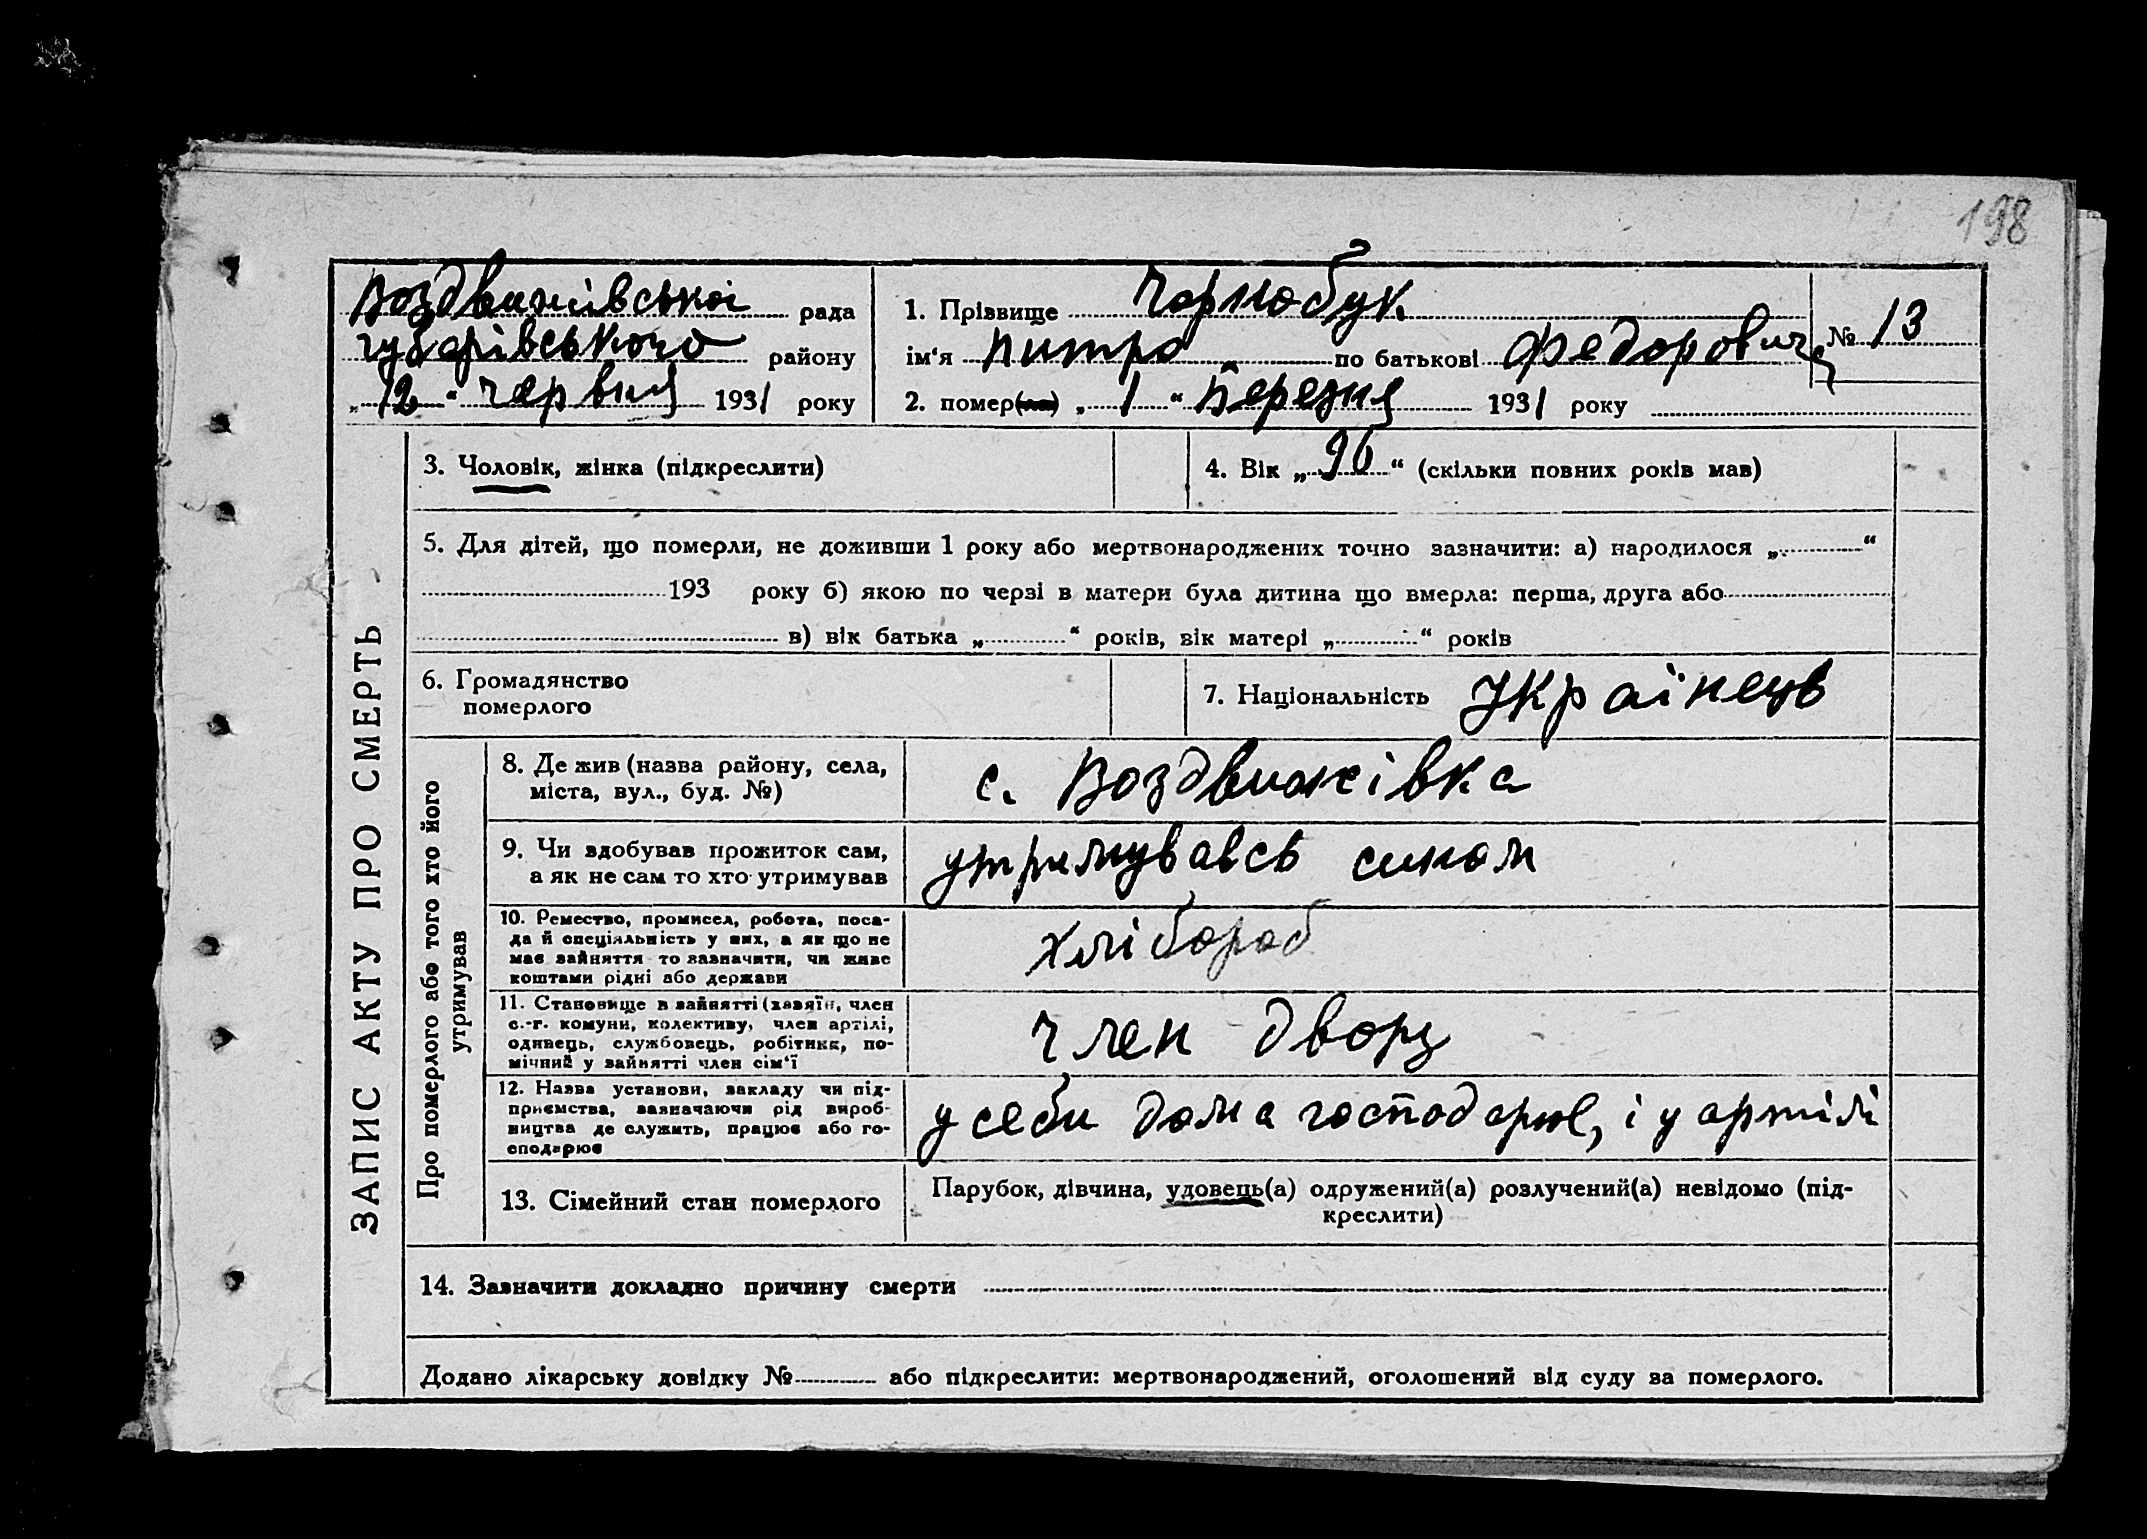 198
Воздвижівської рада
губарівського району
„12“ червня 1931 року
1. Прізвище Чорнобук
ім‘я Питро по батькові Федорович
№ 13
2. помер(ла) „1“ Березня 1931 року
ЗАПИС АКТУ ПРО СМЕРТЬ
3. Чоловік, жінка (підкреслити)
4. Вік „96“ (скільки повних років мав)
5. Для дітей, що померли, не доживши 1 року або мертвонароджених точно зазначити: а) народилося „ “
193 року б) якою по черзі в матери була дитина що вмерла: перша, друга або
в) вік батька „ “ років, вік матері „ “ років
6. Громадянство
померлого
7. Національність Украінець
Про померлого або того хто його
утримував
8. Де жив (назва району, села,
міста, вул., буд. №)
с. Воздвижівка
9. Чи здобував прожиток сам,
а як не сам то хто утримував
утримувавсь сином
10. Ремество, промисел, робота, поса-
да й спеціяльність у них, а як що не
має зайняття то зазначити, чи живе
коштами рідні або держави
хлібороб
11. Становище в зайнятті (хазяїн, член
с.-г. комуни, колективу, член артілі,
одинець, службовець, робітник, по-
мічний у зайнятті член сім‘ї
Член двору
12. Назва установи, закладу чи під-
приємства, зазначаючи рід вироб-
ництва де служить, працює або го-
сподарює
у себи дома господарює, і у артілі
13. Сімейний стан померлого
Парубок, дівчина, удовець(а) одружений(а) розлучений(а) невідомо (під-
креслити)
14. Зазначити докладно причину смерти
Додано лікарську довідку № або підкреслити: мертвонароджений, оголошений від суду за померлого.